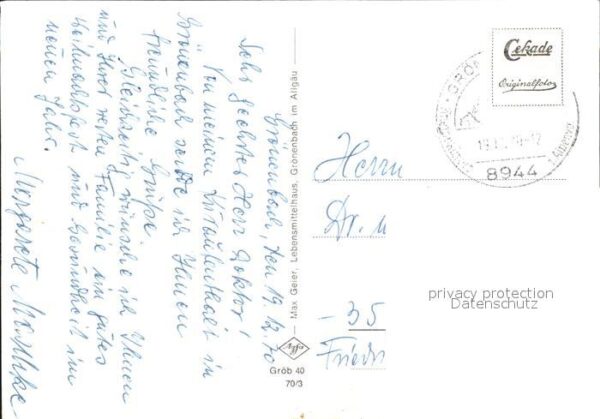 Grönenbach, den 19.12.70
Sehr geehrter Herr Doktor!
Von meinem Kuraufenthalt in
Grönenbach sende ich Ihnen
freundliche Grüße.
Gleichzeitig wünsche ich Ihnen
und Ihrer werten Familie ein gutes
Weihnachtsfest und Gesundheit im
neuen Jahr.
Margarete
Max Geier, Lebensmittelhaus, Grönenbach im Allgäu
Agfa
Gröb 40
70/3
Cekade
Originalfoto
8944
Herrn
Dr. u
-35
privacy protection
Datenschutz